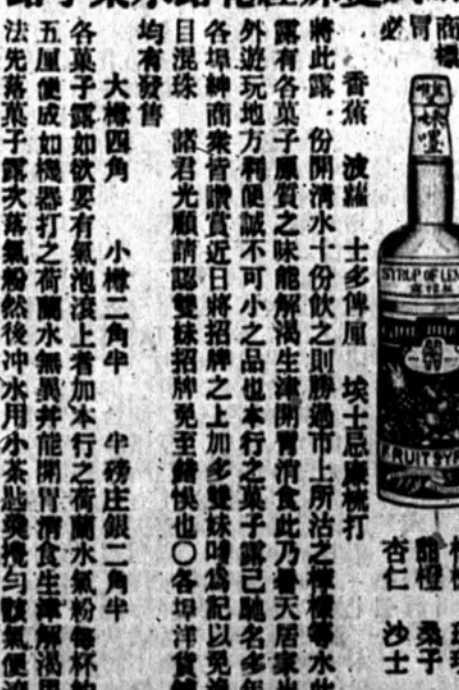 商標
冒
必
雙妹嚜
SYRUP OF LEM
FRUIT SY
甜橙 桑子
杏仁 沙士
香蕉 波羅 士多俾厘 埃士忌廉梳打
將此露 份開清水十份飲之則勝過市上所沽之檸檬等水此
露有各菓子原質之味能解渴生津開胃消食此乃暑天居家出
外遊玩地方利便誠不可小之品也本行之菓子露已馳名多年
各埠紳商衆皆讚賞近日將招牌之上加多雙妹嘜爲記以免魚
目混珠 諸君光顧請認雙妹招牌免至錯悞也〇各埠洋貨舖
均有發售
大樽四角 小樽二角半 半磅庄銀二角半
各菓子露如欲要有氣泡滾上者加本行之荷蘭水氣粉每杯約
五厘便成如機器打之荷蘭水無異幷能開胃消食生津解渴用
法先落菓子露次落氣粉然後冲水用小茶匙攪勻該氣便